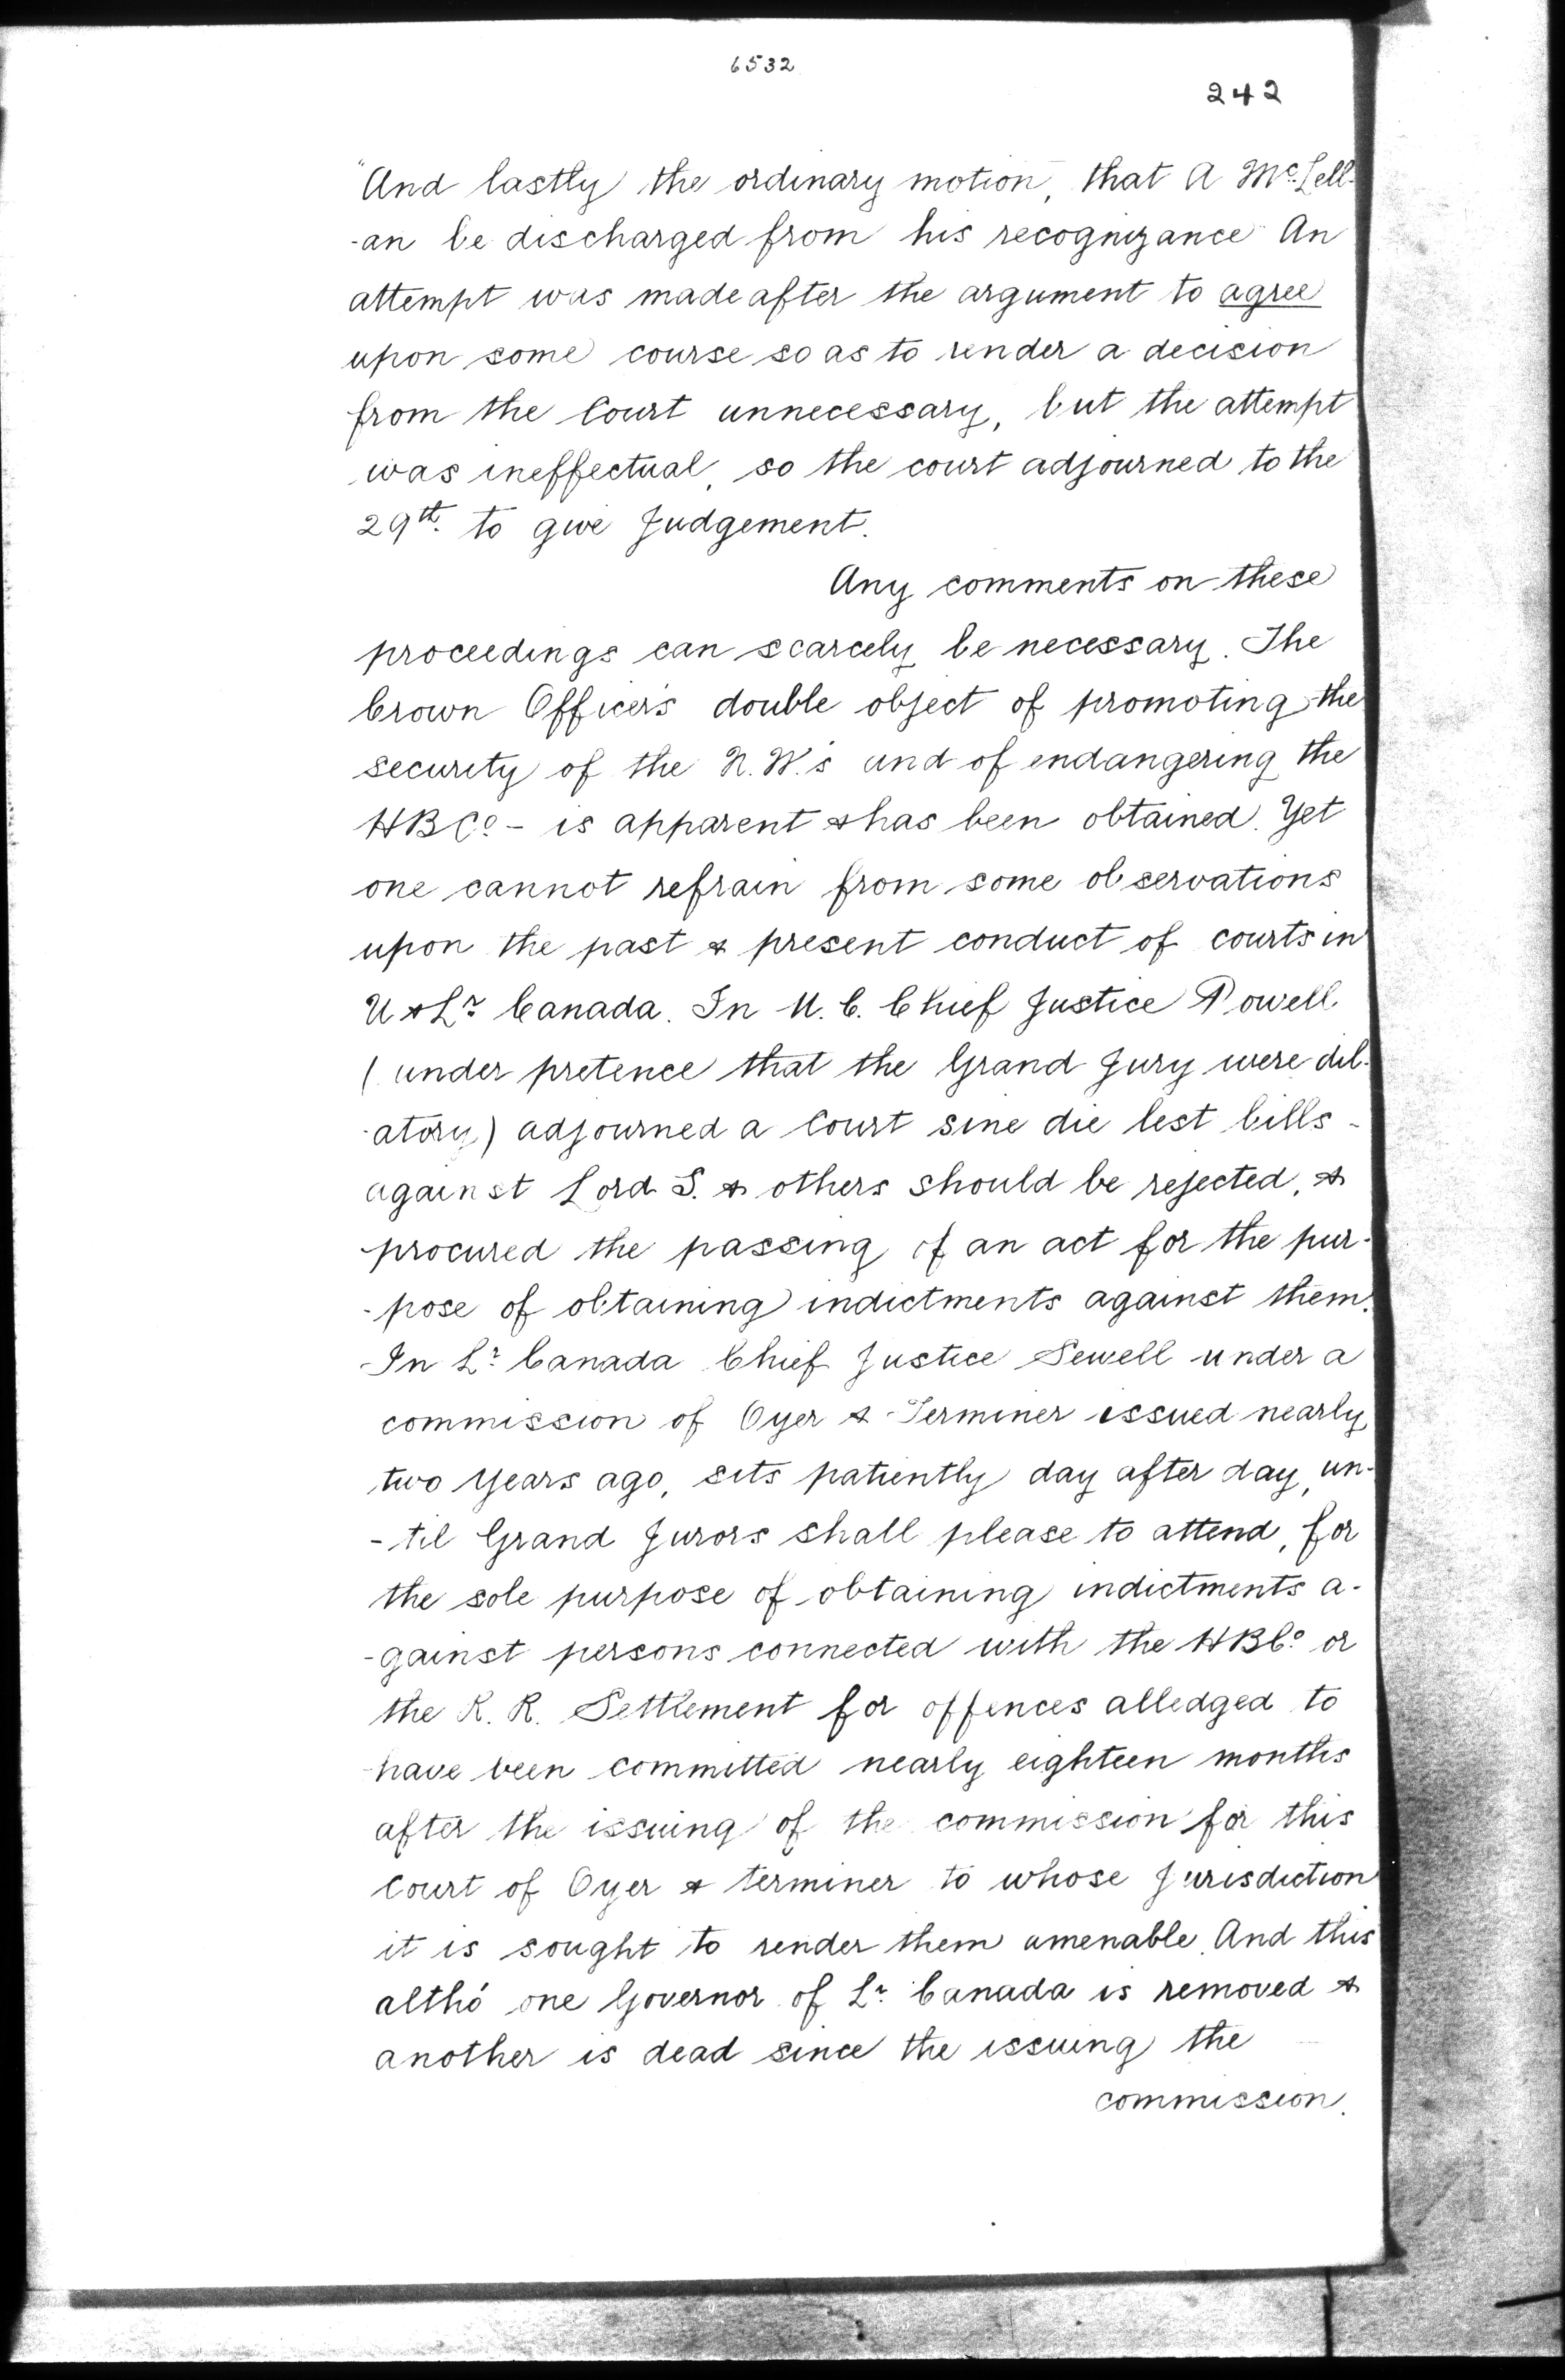 6532
242
"And lastly the ordinary motion, that A McLell-
-an be discharged from his recognizance" An
attempt was made after the argument to agree
upon some course so as to render a decision
from the Court unnecessary, but the attempt
was ineffectual, so the court adjourned to the
29th. to give Judgement.
Any comments on these
proceedings can scarcely be necessary. The
Crown Officers double object of promoting the
security of the N.W.'s and of endangering the
HBCo - is apparent & has been obtained. Yet
one cannot refrain from some observations
upon the past & present conduct of courts in
U & Lr Canada. In U.C. Chief Justice Powell
(under pretence that the Grand Jury were dil-
-atory) adjourned a Court sine die lest bills -
against Lord S. & others should be rejected, &
procured the passing of an act for the pur-
-pose of obtaining indictments against them.
In Lr Canada Chief Justice Sewell under a
commission of Oyer & Terminer issued nearly
two years ago, sits patiently day after day, un-
-til Grand Jurors shall please to attend, for
the sole purpose of obtaining indictments a-
-gainst persons connected with the HBCo or
the R. R. Settlement for offences alledged to
have been committed nearly eighteen months
after the issuing of the commission for this
Court of Oyer & terminer to whose Jurisdiction
it is sought to render them amenable. And this
altho' one Governor of Lr Canada is removed &
another is dead since the issuing the
commission.